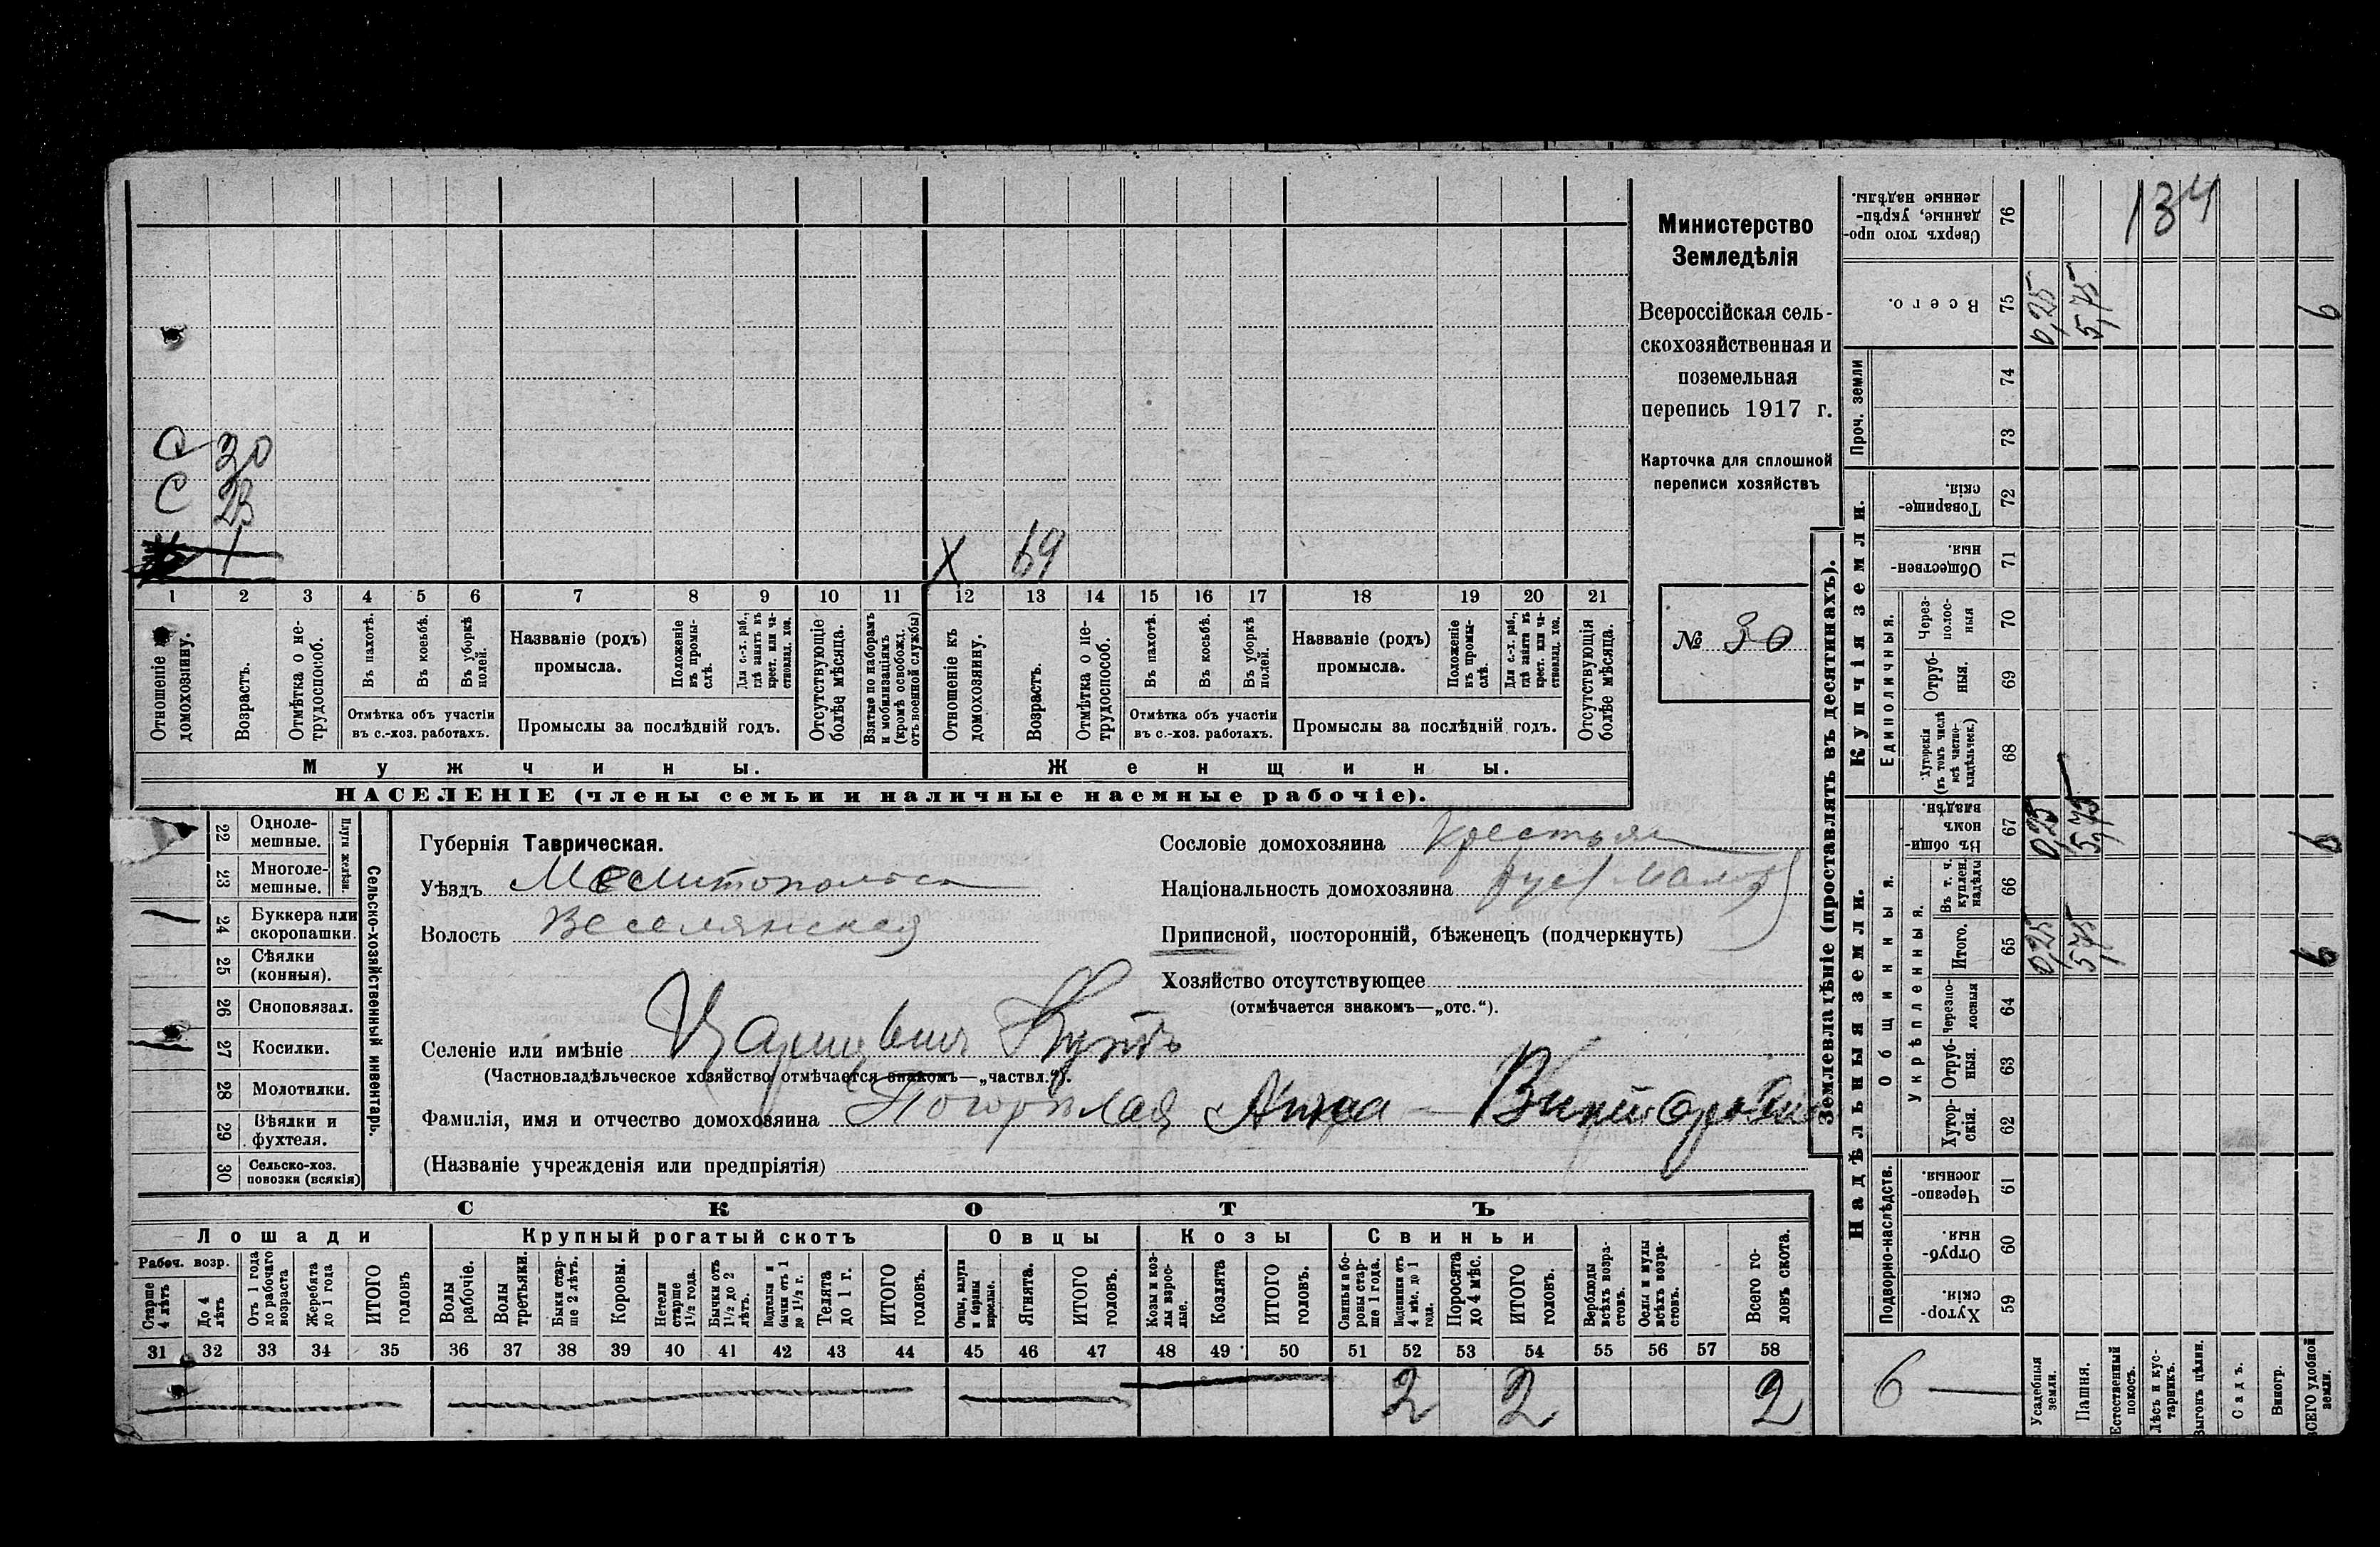 Министерство
Земледѣлія
Всероссійская сель-
скохозяйственная и
поземельная
перепись 1917 г.
Карточка для сплошной
переписи хозяйствъ
№ 30
С 30
С 23
1
X 69
1 2 3 4 5 6 7 8 9 10 11 12 13 14 15 16 17 18 19 20 21
Отношеніе къ домохозяину.
Возрастъ.
Отмѣтка о не-трудоспособ.
Въ пахотѣ.
Въ косьбѣ.
Въ уборкѣ полей.
Отмѣтка объ участіи
въ с.-хоз. работахъ.
Названіе (родъ)
промысла.
Положеніе въ промы-слѣ.
Для с.-х. раб., гдѣ занятъ въ крест. или ча-стновлад. хоз.
Промыслы за послѣдній годъ.
Отсутствующіе болѣе мѣсяца.
Взятые по наборамъ и мобилизаціямъ (кромѣ освобожд. отъ военной службы)
Отношеніе къ домохозяину.
Возрастъ.
Отмѣтка о не-трудоспособ.
Въ пахотѣ.
Въ косьбѣ.
Въ уборкѣ полей.
Отмѣтка объ участіи
въ с.-хоз. работахъ.
Названіе (родъ)
промысла.
Положеніе въ промы-слѣ.
Для с.-х. раб., гдѣ занята въ крест. или ча-стновлад. хоз.
Промыслы за послѣдній годъ.
Отсутствующія болѣе мѣсяца.
Мужчины. Женщины.
НАСЕЛЕНІЕ (члены семьи и наличные наемные рабочіе).
Сельско-хозяйственный инвентарь.
Плуги желѣзн.
22 Одноле-мешные.
23 Многоле-мешные.
24 Буккера или скоропашки.
25 Сѣялки (конныя).
26 Сноповязал.
27 Косилки.
28 Молотилки.
29 Вѣялки и фухтеля.
30 Сельско-хоз. повозки (всякія)
Губернія Таврическая.
Уѣздъ Мелитопольск
Волость Веселянская
Сословіе домохозяина Крестьян
Національность домохозяина рус/ малор
Приписной, посторонній, бѣженецъ (подчеркнуть)
Хозяйство отсутствующее
(отмѣчается знакомъ—„отс.“).
Селеніе или имѣніе Царицынъ Кутъ
(Частновладѣльческое хозяйство отмѣчается знакомъ—„частвл.“).
Фамилія, имя и отчество домохозяина Погорѣлая Анна — Викторовна
(Названіе учрежденія или предпріятія)
СКОТЪ
Лошади Крупный рогатый скотъ Овцы Козы Свиньи
Рабоч. возр.
Старше 4 лѣтъ
До 4 лѣтъ
Отъ 1 года до рабочаго возраста
Жеребята до 1 года
ИТОГО головъ
Волы рабочіе.
Волы третьяки.
Быки стар-ше 2 лѣтъ.
Коровы.
Нетели старше 1½ года.
Бычки отъ 1½ до 2 лѣтъ.
Подтелки и бычки отъ 1 до 1½ г.
Телята до 1 г.
ИТОГО головъ.
Овцы, валухи и бараны взрослые.
Ягнята.
ИТОГО головъ.
Козы и коз-лы взрос-лые.
Козлята
ИТОГО головъ.
Свиньи и бо-ровы стар-ше 1 года.
Подсвинки отъ 4 мѣс. до 1 года.
Поросята до 4 мѣс.
ИТОГО головъ.
Верблюды всѣхъ возра-стовъ.
Ослы и мулы всѣхъ возра-стовъ.
Всего го-ловъ скота.
31 32 33 34 35 36 37 38 39 40 41 42 43 44 45 46 47 48 49 50 51 52 53 54 55 56 57 58
2 2 2
Землевладѣніе (проставлять въ десятинахъ).
134
Сверхъ того про-данные, укрѣп-ленные надѣлы. 76
Всего. 75 0,25 5,75 6
Проч. земли 74
73
Купчія земли.
Товарище-скія. 72
Обществен-ныя. 71
Единоличныя.
Через-полос-ныя 70
Отруб-ныя. 69
Хуторскія (въ томъ числѣ всѣ частно-владѣльческ.) 68
Надѣльныя земли.
Общинныя.
Въ общи-номъ владѣн. 67 0,25 5,75 6
Укрѣпленныя.
Въ т. ч. куплен. надѣлы 66
Итого. 65 0,25 5,75 6
Черезпо-лосныя 64
Отруб-ныя. 63
Хутор-скія. 62
Подворно-наслѣдств.
Черезпо-лосныя 61
Отруб-ныя. 60
Хутор-скія. 59
6 —
Усадебныя земли.
Пашня.
Естественный покосъ.
Лѣсъ и кус-тарникъ.
Выгонъ цѣлин.
Садъ.
Виногр.
ВСЕГО удобной земли.